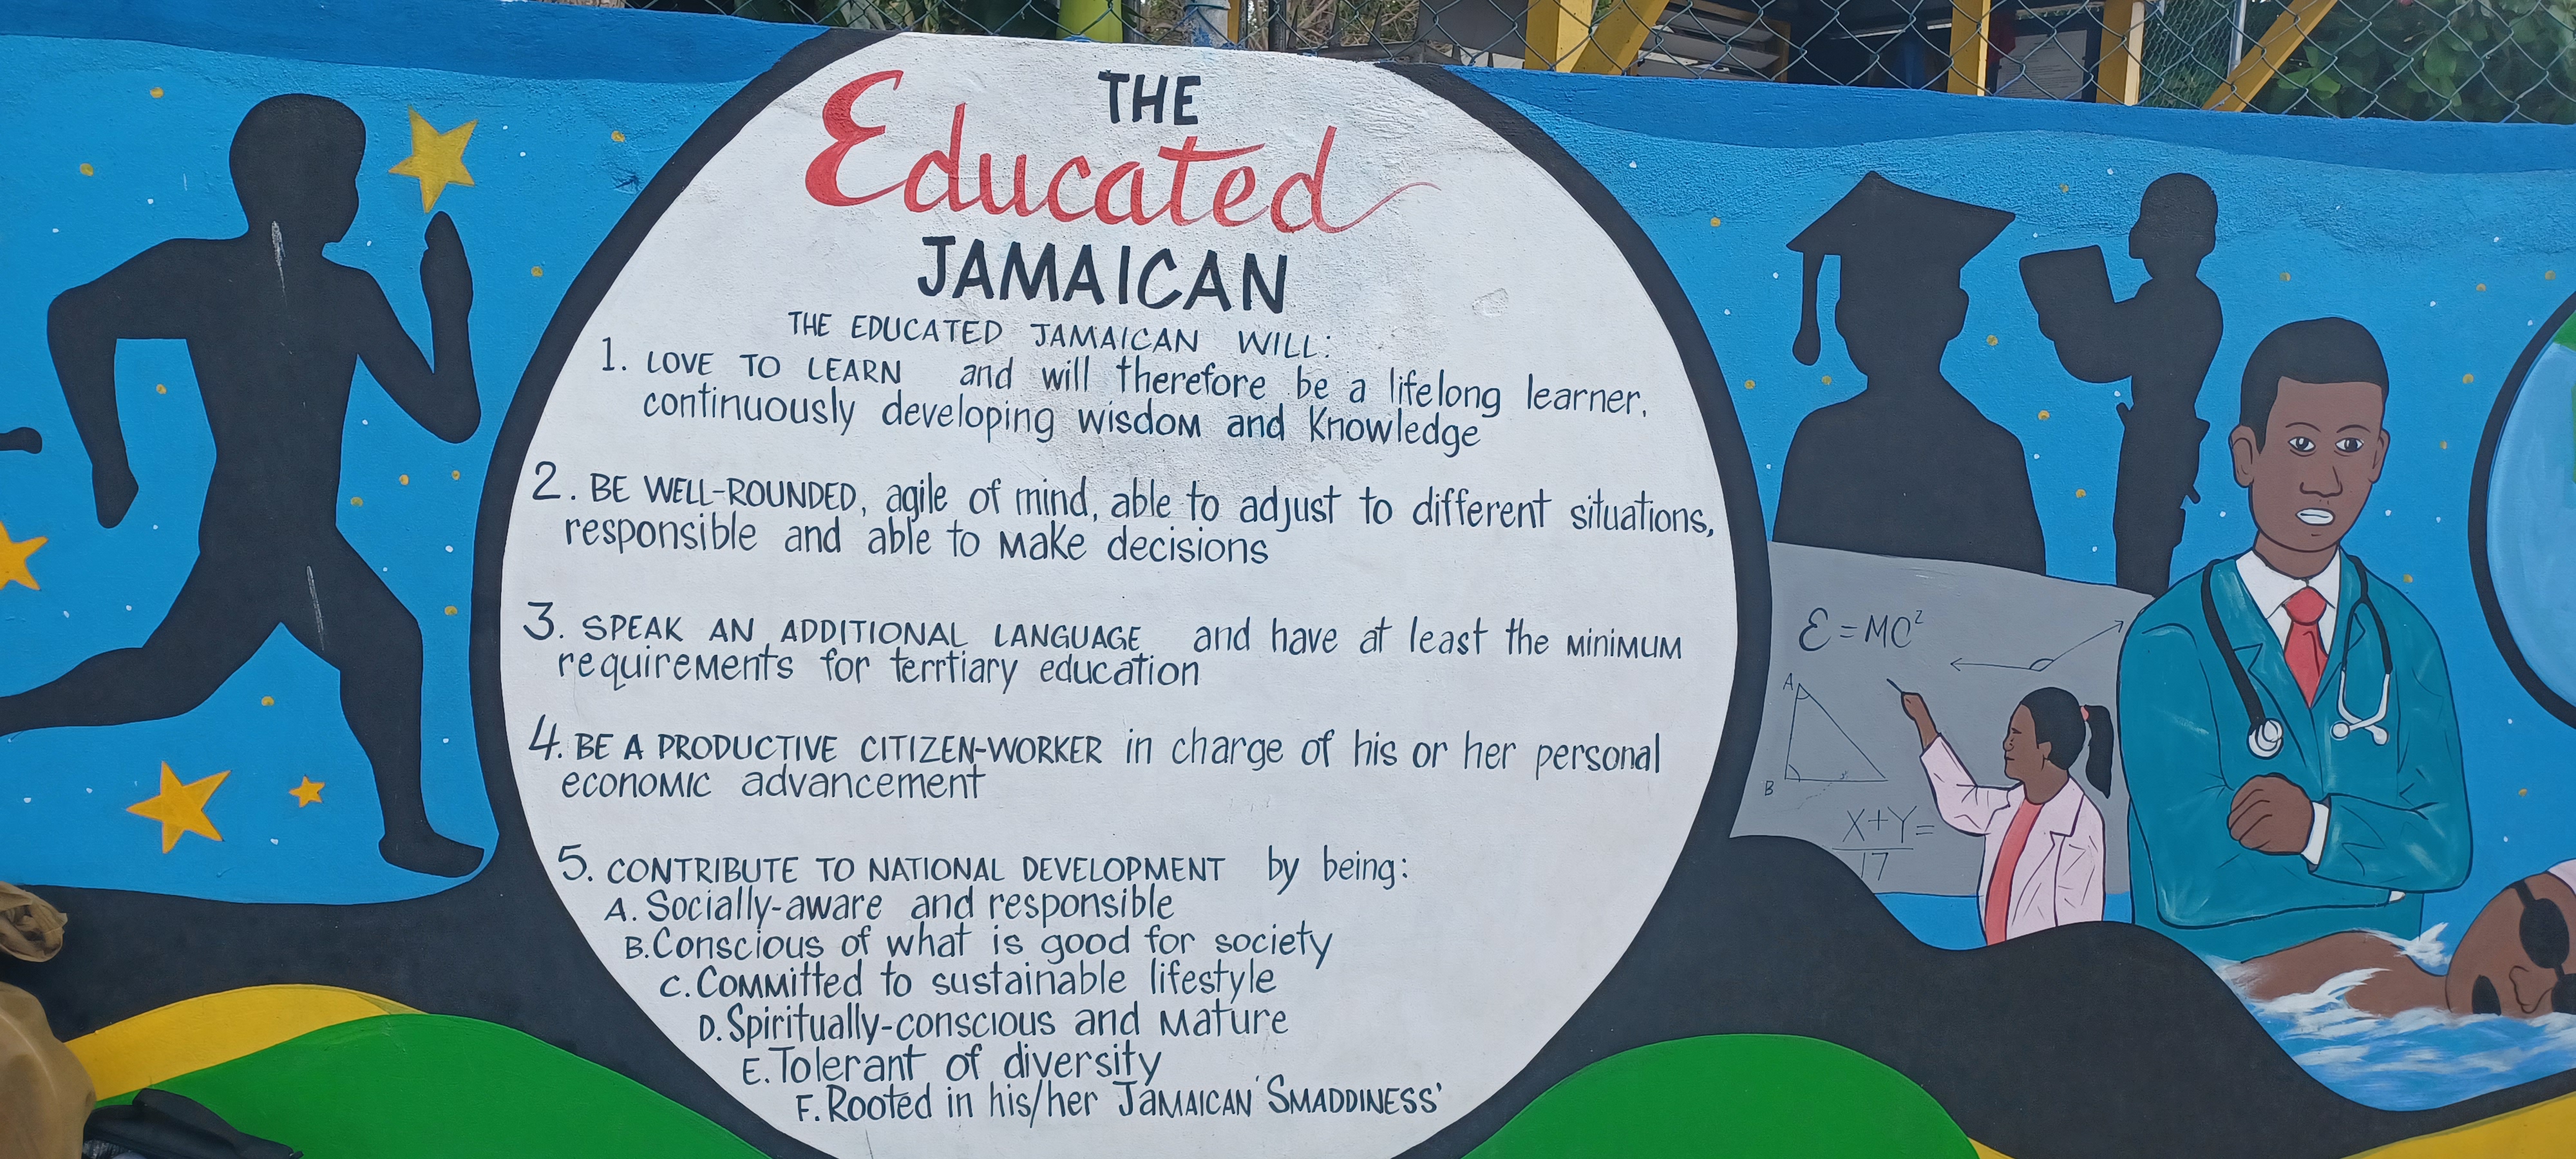 THE
Educated
JAMAICAN
THE EDUCATED JAMAICAN WILL:
1. LOVE TO LEARN and will therefore be a lifelong learner,
continuously developing wisdom and Knowledge
2. BE WELL-ROUNDED, agile of mind, able to adjust to different situations,
responsible and able to make decisions
3. SPEAK AN ADDITIONAL LANGUAGE and have at least the MINIMUM
requirements for terrtiary education
4. BE A PRODUCTIVE CITIZEN-WORKER in charge of his or her personal
economic advancement
5. CONTRIBUTE TO NATIONAL DEVELOPMENT by being:
A. Socially-aware and responsible
B. Conscious of what is good for society
C. Committed to sustainable lifestyle
D. Spiritually-conscious and Mature
E. Tolerant of diversity
F. Rooted in his/her JAMAICAN 'SMADDINESS'
E=MC²
A
B
X+Y=
17